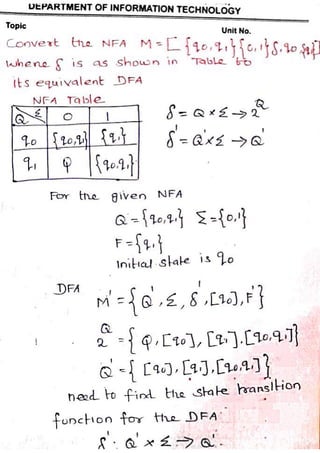 DEPARTMENT OF INFORMATION TECHNOLOGY
Topic Unit No.
Convert the NFA M = [{q0,q1}{0,1}δ,q0,{q1}]
where δ is as shown in Table to
Its equivalent DFA
NFA Table
Q Σ 0 1
q0 {q0,q1} {q1}
q1 φ {q0,q1}
δ = Q×Σ → 2^Q
δ' = Q'×Σ → Q'
For the given NFA
Q = {q0,q1} Σ={0,1}
F = {q1}
Initial state is q0
DFA
M' = {Q',Σ,δ',[q0],F'}
2^Q = {φ,[q0],[q1],[q0,q1]}
Q' = {[q0],[q1],[q0,q1]}
need to find the state transition
function for the DFA
δ': Q' × Σ → Q'